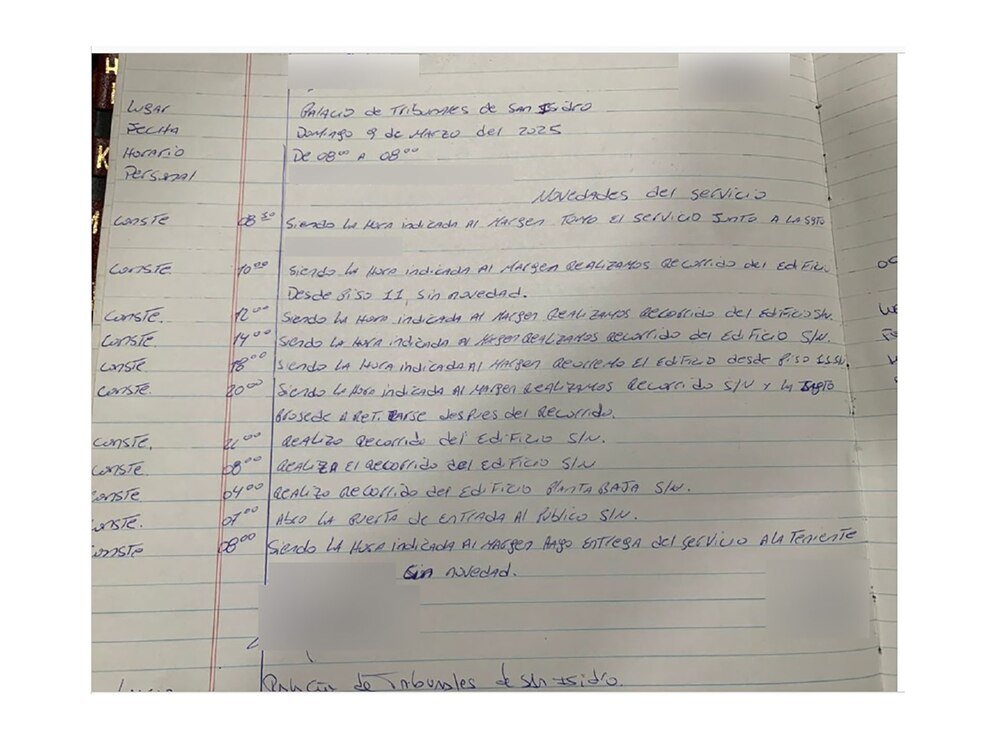 Lugar Palacio de Tribunales de San Isidro
Fecha Domingo 9 de Marzo del 2025
Horario De 08⁰⁰ A 08⁰⁰
Personal
Novedades del servicio
Conste 08³⁰ Siendo la Hora indicada Al Margen Tomo El Servicio Junto A la Sgto
Conste 10⁰⁰ Siendo la Hora indicada Al Margen Realizamos Recorrido del Edificio
Desde Piso 11, Sin novedad.
Conste. 12⁰⁰ Siendo la Hora indicada Al Margen Realizamos Recorrido del Edificio S/N.
Conste. 14⁰⁰ Siendo la Hora indicada Al Margen Realizamos Recorrido del Edificio S/N.
Conste 18⁰⁰ Siendo la Hora indicada Al Margen Recorremo El Edificio desde Piso 11 S/N
Conste. 20⁰⁰ Siendo la Hora indicada Al Margen Realizamos Recorrido S/N y la Sgto
Prosede A despues del Recorrido.
Conste. Realizo Recorrido del Edificio S/N.
Conste. Realiza El Recorrido del Edificio S/N
Conste. 04⁰⁰ Realizo Recorrido del Edificio Planta Baja S/N.
Conste. 07⁰⁰ Abro la Puerta de Entrada Al Publico S/N.
Conste 08⁰⁰ Siendo la Hora indicada Al Margen Hago Entrega del Servicio A la Teniente
Sin novedad.
Palacio de Tribunales de San Isidro.